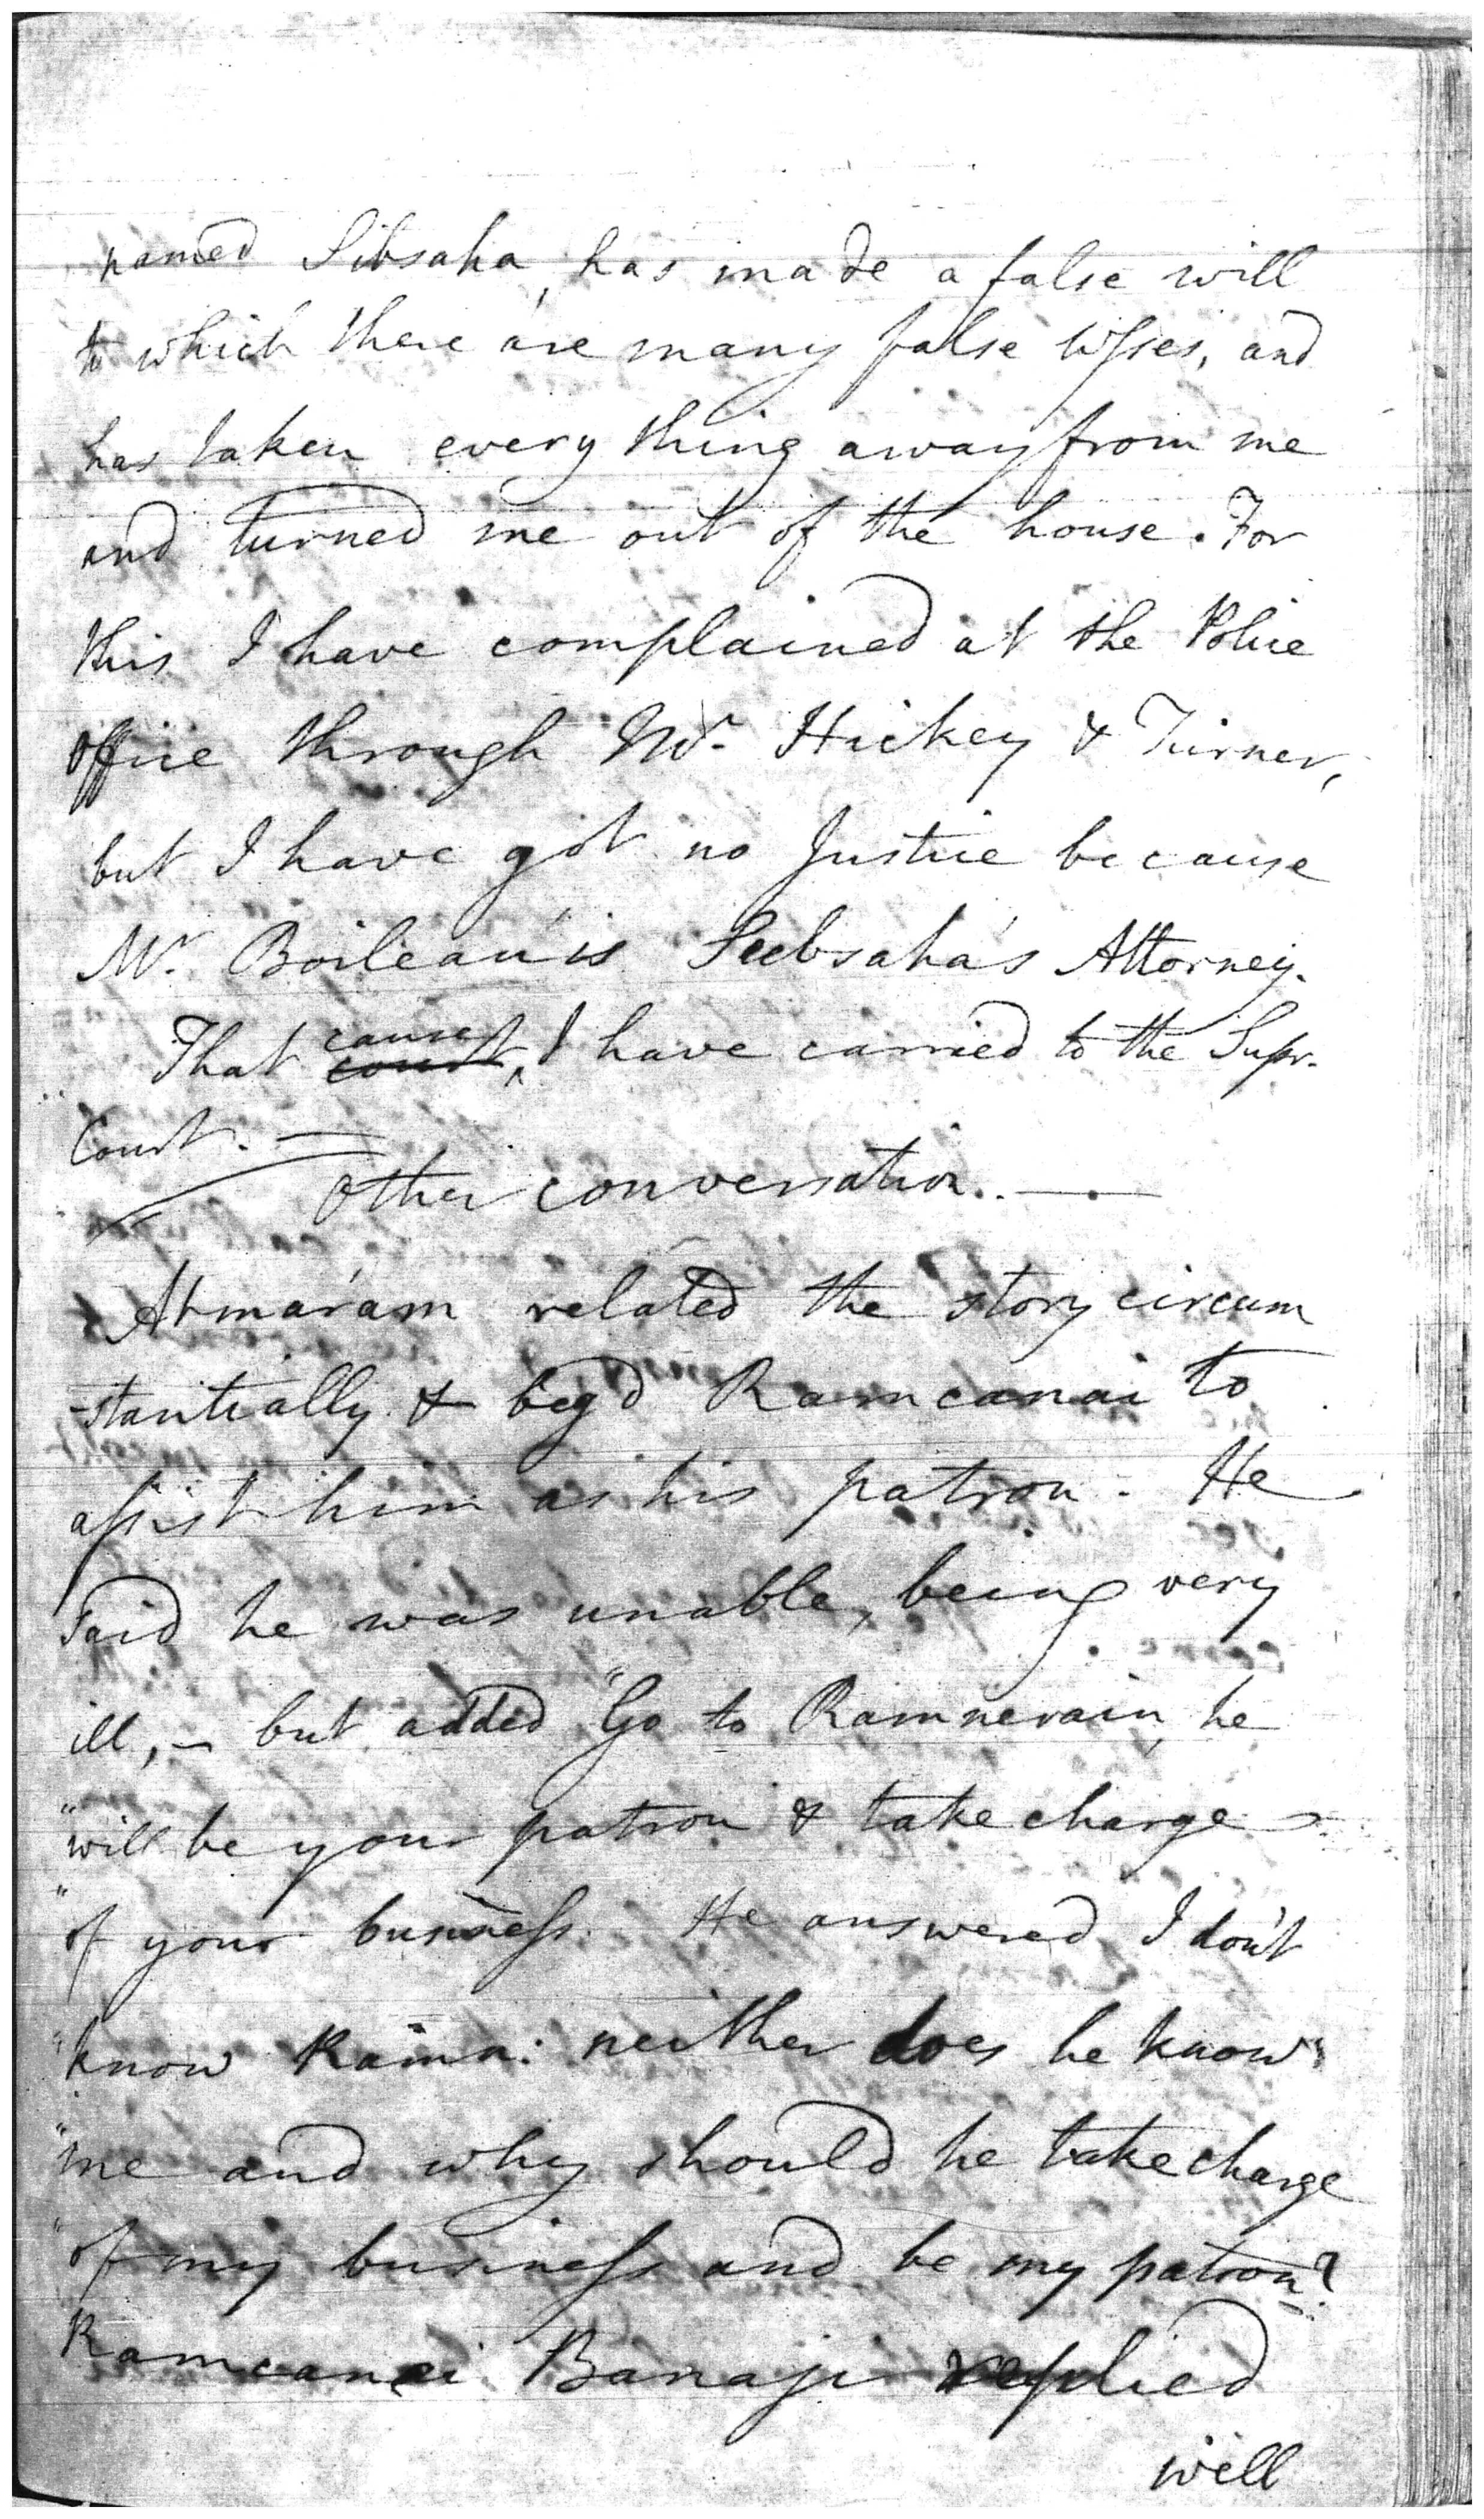 named Sibsaha, has made a false will
to which there are many false wisses, and
has taken every thing away from me
and turned me out of the house. For
this I have complained at the Police
office through Mr. Hickey & Turner,
but I have got no Justice because
Mr. Boileau is Seebsaha's Attorney.
That court cause, I have carried to the Supr.
Court. —
other conversation. —
Atmarám related the story circum
-stantially & beg'd Ramcanai to
assist him as his patron. He
said he was unable, being very
ill, — but added "Go to Ramnerain, he
"will be your patron & take charge
"of your business. He answered I don't
"know Ramn: neither does he know
"me and why should he take charge
"of my business and be my patron?
Ramcanai Banaji replied
will